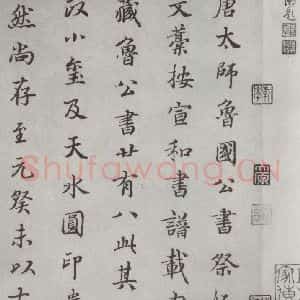 唐太師魯國公書祭
文藁按宣和書譜載
藏魯公書廿有八此其
改小璽及天水圓印
然尚存至元癸未以
Shufawang.CN